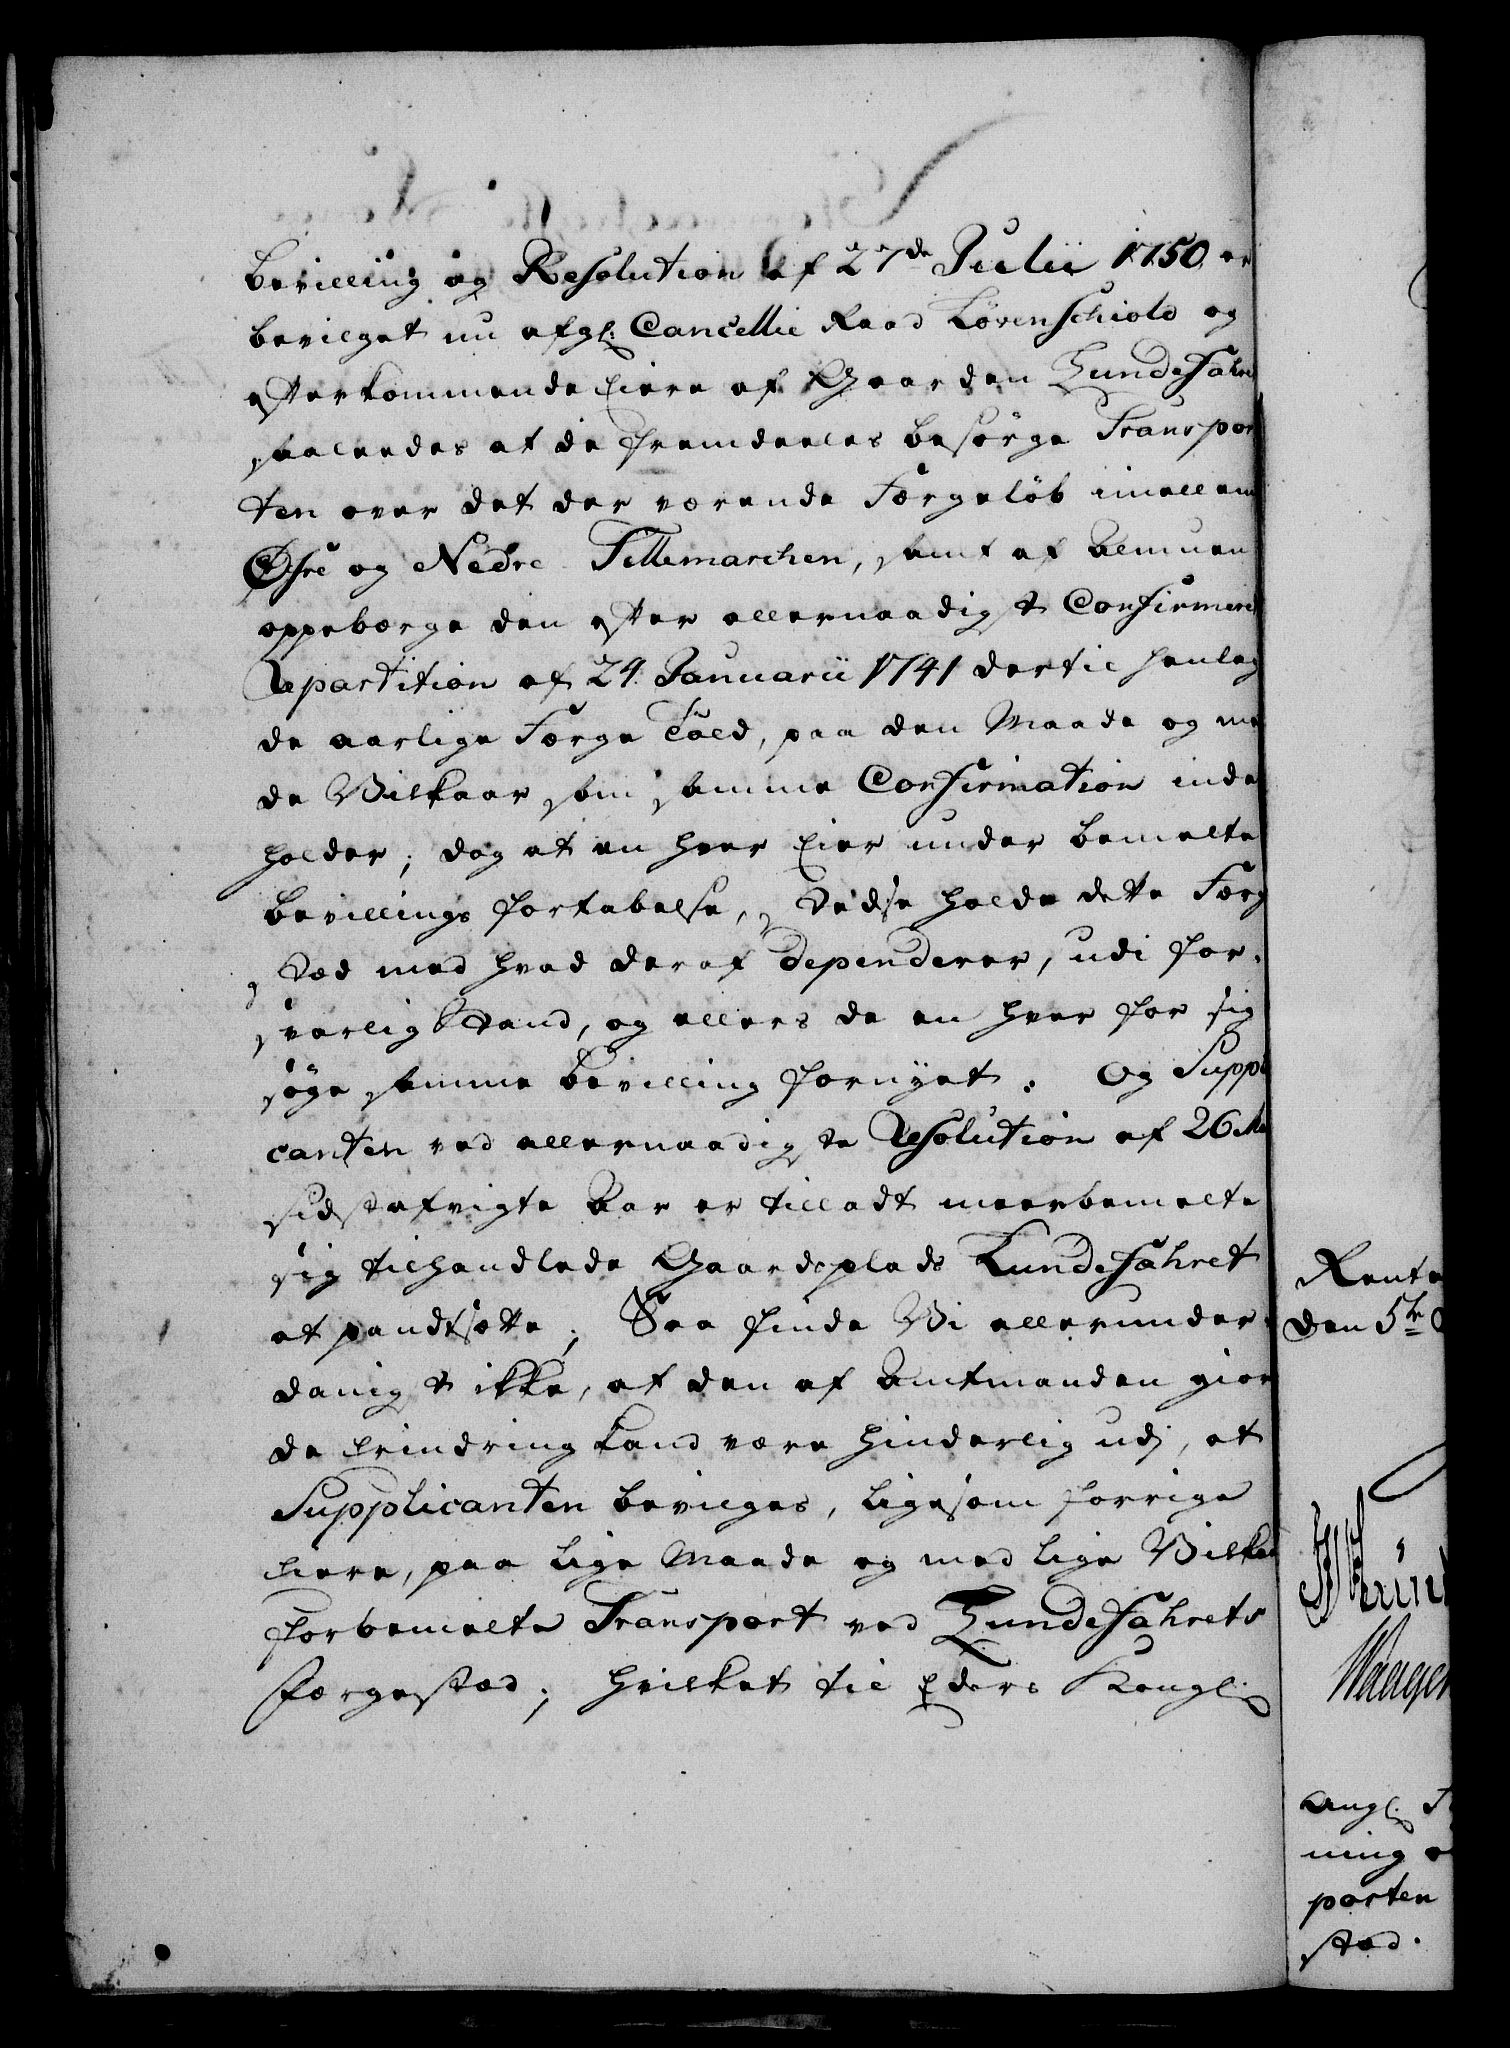 bevilling og Resolution af 27de Julii 1750 er
bevilget nu afgl: Cancellie Raad Lövenschiold og
efterkommende Eiere af Gaarden Lundefahre
saaledes at de fremdeeles besörge Transpor
ten over det der værende Færgelöb imellem
Öfre og Nedre Tillemarchen, samt af Almuen
oppebærge den efter allernaadigst Confirmere
Repartition af 24 Januarii 1741 dertil henlag
de aarlige Færge Told, paa den Maade og me
de Vilkaar som samme Confirmation inde
holder; dog at en hver Eier under bemelte
bevillings fortabelse, stedse holde dette Færg
stæd med hvad deraf dependerer, udi for-
svarlig Stand, og ellers de en hver for sig
söge samme bevilling fornyet. Og Suppli
canten ved allernaadigste Resolution af 26 Ma
sidstafvigte Aar er tilladt meerbemelte
sig tilhandlede Gaardsplads Lundefahret
at pandtsætte; Saa finde Vi allerunder-
danigst ikke, at den af Amtmanden gior
de Erindring kand være hinderlig udj, at
Supplicanten bevilges, ligesom forrige
Eiere, paa lige Maade og med lige Vilkaa
forbemelte Transport ved Lundefahrets
Færgestæd; hvilket til Eders Kongl:
Rente
den 5te
ning
porten
stæd.